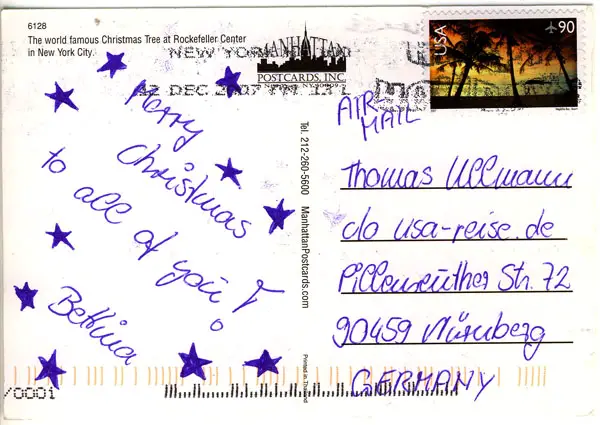 6128
The world famous Christmas Tree at Rockefeller Center
in New York City.
MANHATTAN
POSTCARDS, INC
NEW YORK
12 DEC 2007 PM 13 L
USA
90
AIR
MAIL
Merry
Christmas
to all of you!
Bettina
Tel. 212-260-5600 ManhattanPostcards.com
Printed in Thailand
Thomas Ullmann
c/o usa-reise.de
Pillenreuther Str. 72
90459 Nürnberg
GERMANY
/0001